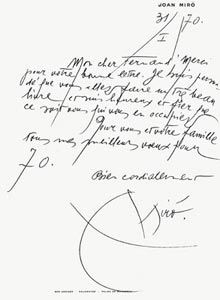 JOAN MIRÓ
31/I/70.
Mon cher Fernand, Merci
pour votre bonne lettre. Je suis persua-
dé que vous allez faire un très beau
livre et suis heureux et fier que
ce soit vous qui vous en occupiez
Pour vous et votre famille
tous mes meilleurs vœux pour
70.
Bien cordialement
Miró.